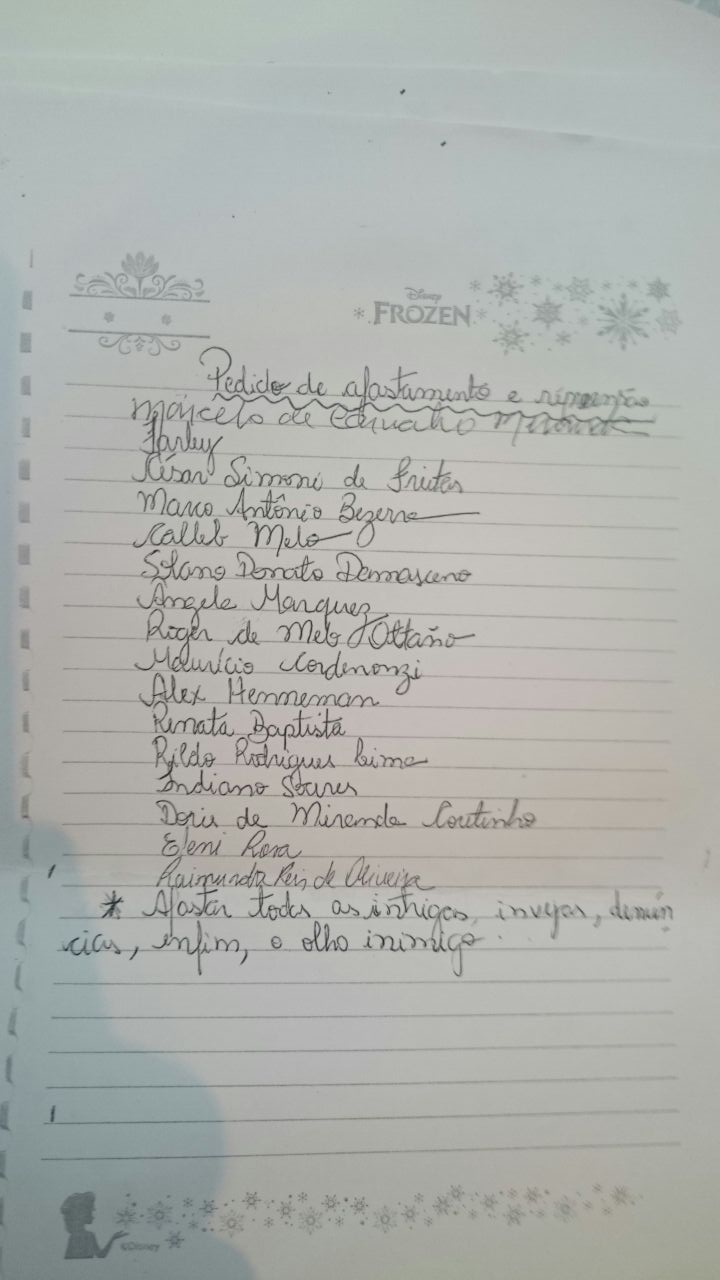 Disney
FROZEN
Pedido de afastamento e
Marcelo de Carvalho Miranda
Farley
César Simoni de Freitas
Marco Antônio Bezerra
Kalleb Melo
Solano Donato Damasceno
Angela Marquez
Roger de Melo Ottaño
Maurício Cordenonzi
Alex Henneman
Renata Baptista
Rildo Rodrigues Lima
Indiano Soares
Doris de Miranda Coutinho
Eleni Rosa
Raimunda Reis de Oliveira
* Afastar todas as intrigas, invejas, denún
cias, enfim, o olho inimigo.
©Disney